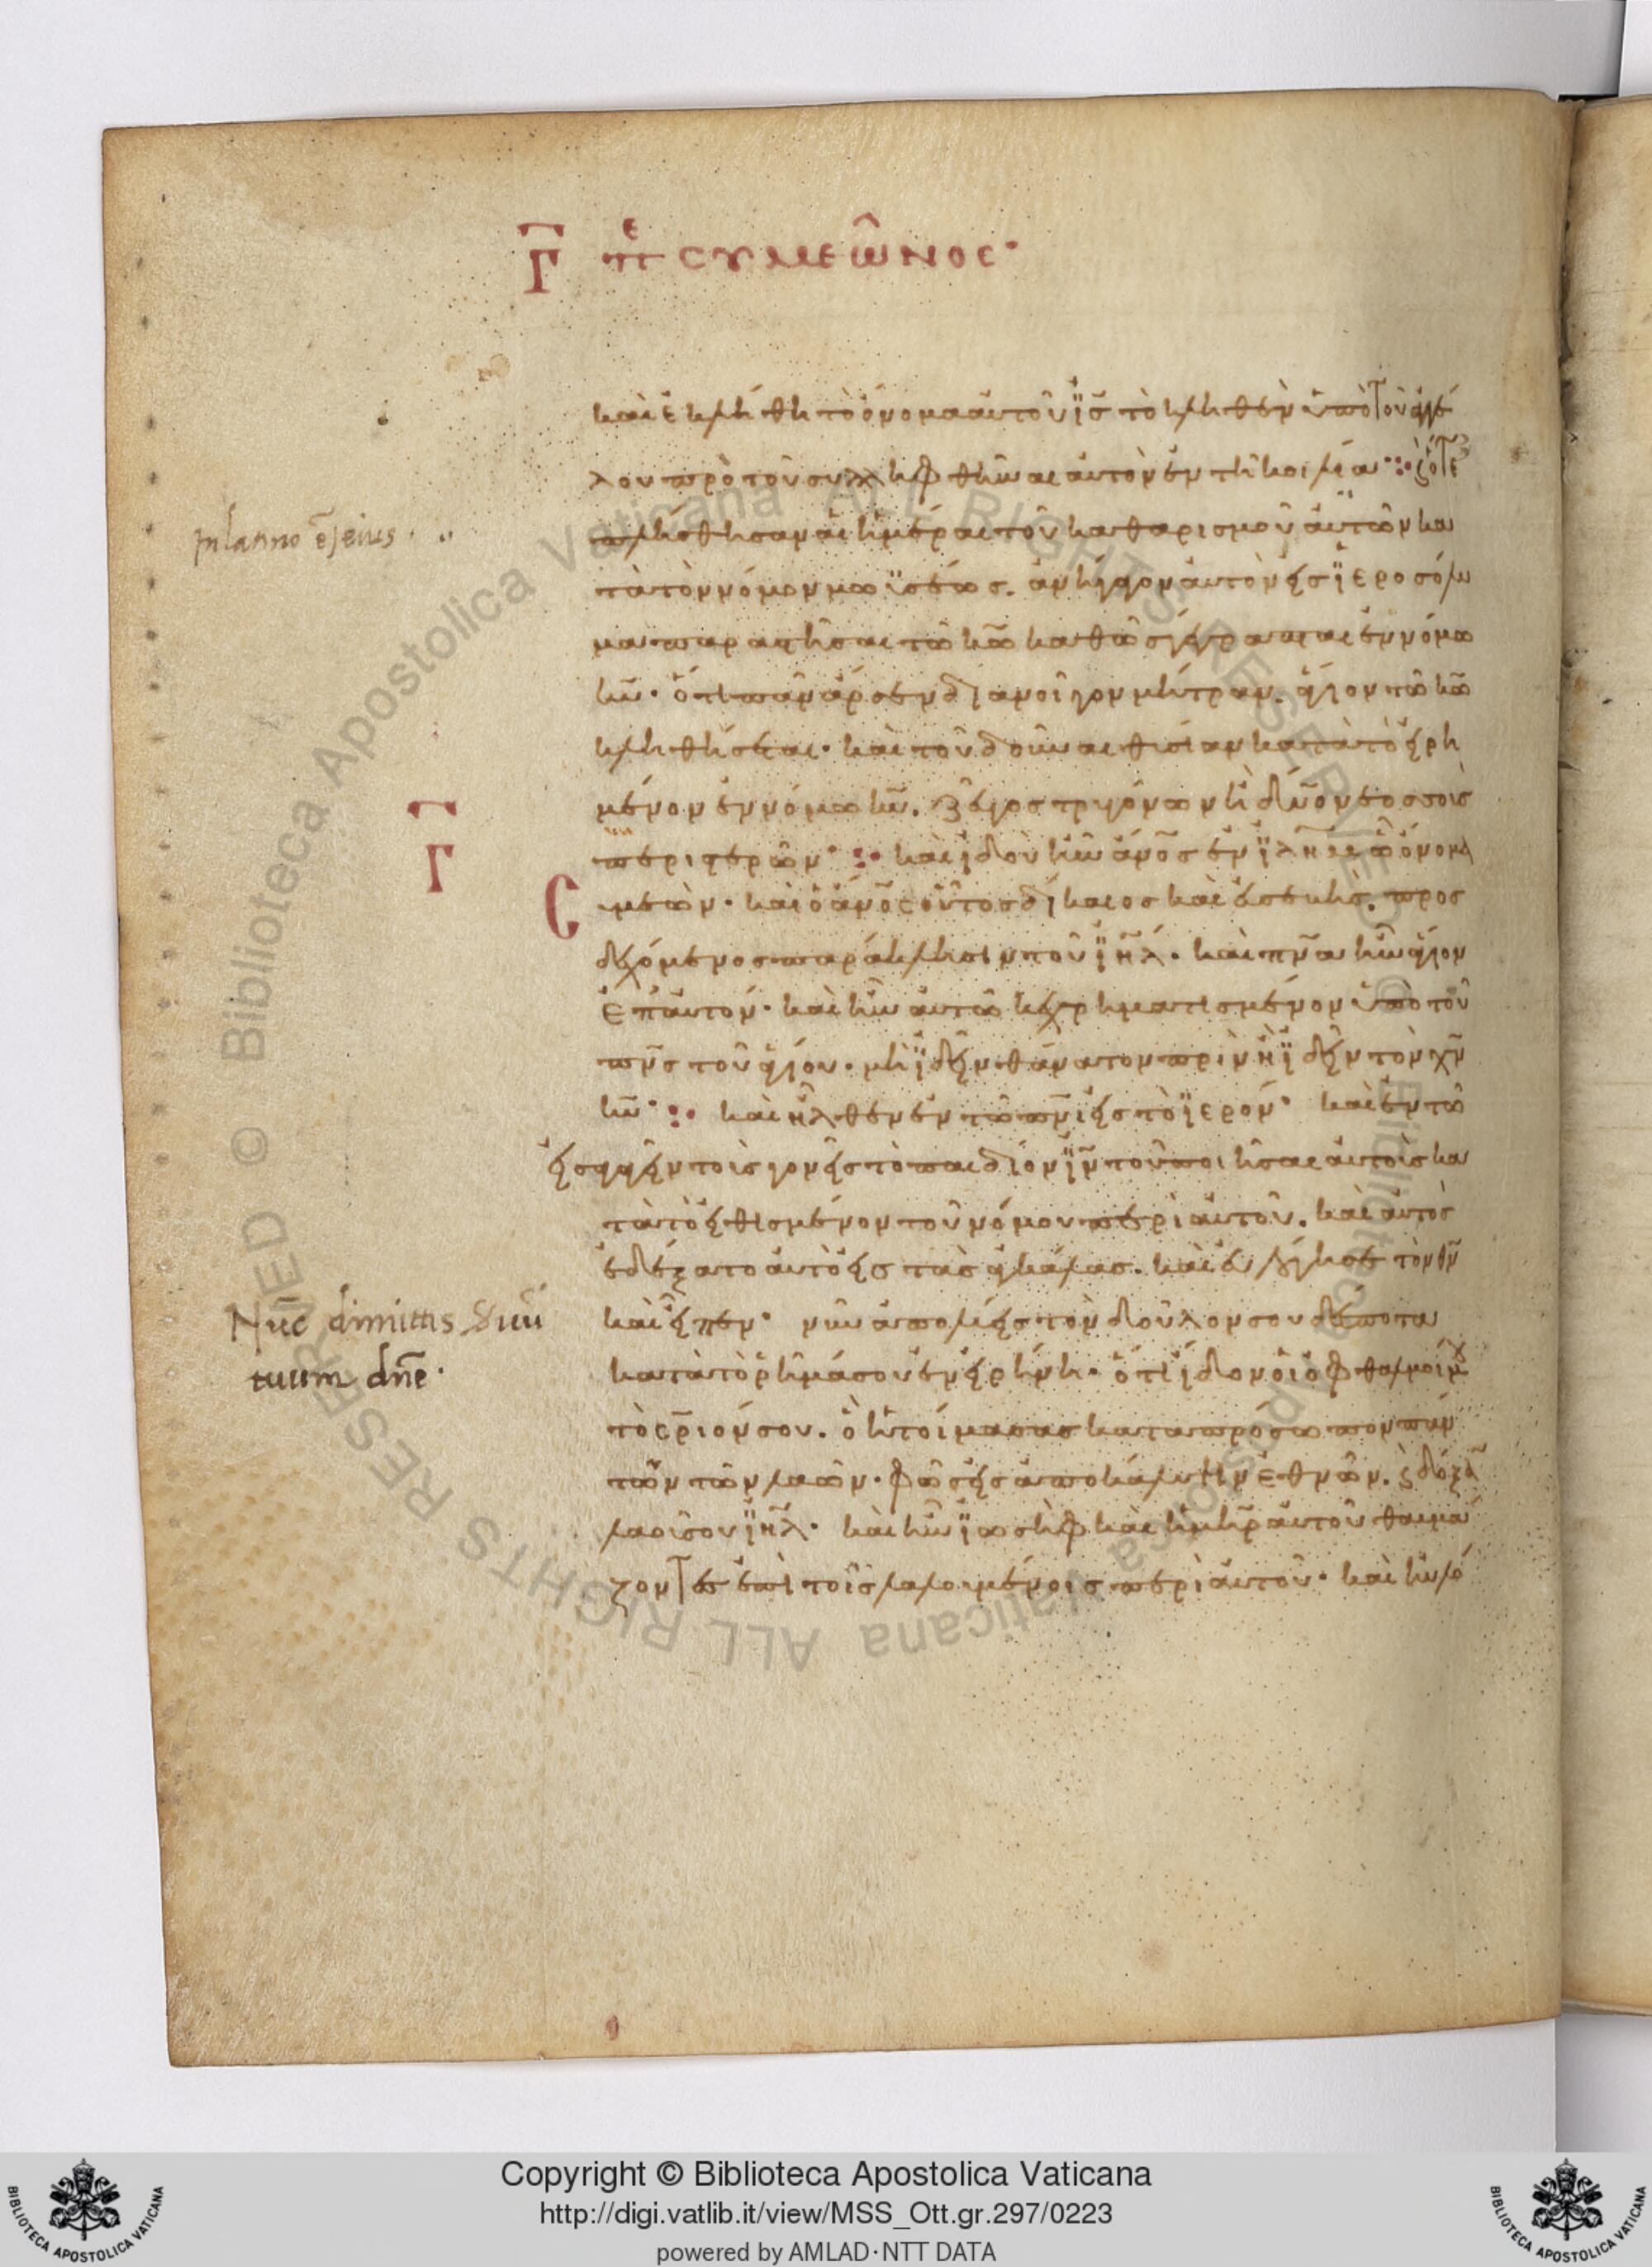 Γ πε συμεῶνος·
καὶ ἐκλήθη τὸ ὄνομα αὐτοῦ ϊς τὸ κληθὲν ὑπὸ τοῦ ἀγγέ
λου πρὸ τοῦ συλληφθῆναι αὐτὸν ἐν τῆ κοιλία· ⁘ ϛ ὅτε
Inlanno ē jeius ·
πλήσθησαν αἱ ἡμέραι τοῦ καθαρισμοῦ αὐτῶν κα
τὰ τὸν νόμον μωϊσέως. ἀνήγαγον αὐτὸν εἰς ϊεροσόλυ
μα παραστῆσαι τῶ κω καθὼς γέγραπται ἐν νόμω
κυ· ὅτι πᾶν ἄρσεν διανοῖγον μήτραν. ἅγιον τῶ κω
κληθήσεται· καὶ τοῦ δοῦναι θυσίαν κατὰ τὸ εἰρη
μένον ἐν νόμω κυ. ζεῦγος τρυγόνων ἢ δύο νεοσσοὺς
Γ
περιστερῶν· ⁘ καὶ ἰδοὺ ἦν ἀνος ἐν ϊλημ ὧ ὄνομα
Cυμεών· καὶ ὁ ἀνος οὗτος δίκαιος καὶ εὐσεβής. προς
δεχόμενος παράκλησιν τοῦ ϊηλ· καὶ πνα ἦν ἅγιον
ἐπ αὐτόν· καὶ ἦν αὐτῶ κεχρηματισμένον ὑπὸ τοῦ
πνς τοῦ ἁγίου· μὴ ϊδεῖν θάνατον πρὶν ἢ ϊδεῖν τὸν χν
κυ· ⁘ καὶ ἦλθεν ἐν τῶ πνι εἰς τὸ ϊερόν· καὶ ἐν τῶ
εἰσαγαγεῖν τοὺς γονεῖς τὸ παιδίον ϊν τοῦ ποιῆσαι αὐτοὺς κα
τὰ τὸ εἰθισμένον τοῦ νόμου περὶ αὐτοῦ. καὶ αὐτὸς
ἐδέξατο αὐτὸ εἰς τὰς ἀγκάλας. καὶ εὐλόγησε τὸν θν
Nūc dimittis Suū
καὶ εἶπεν· νῦν ἀπολύεις τὸν δοῦλον σου δέσποτα
tuum dn̄e·
κατὰ τὸ ῥῆμά σου ἐν εἰρήνη· ὅτι εἶδον οἱ ὀφθαλμοί μου
τὸ σριον σου. ὃ ἡτοίμασας κατα πρόσωπον πάν
των τῶν λαῶν· φῶς εἰς ἀποκάλυψιν ἐθνῶν. ϛ δόξαν
λαοῦ σου ϊηλ· καὶ ἦν ϊωσὴφ καὶ ἡ μηρ αὐτοῦ θαυμά
ζοντες ἐπὶ τοῖς λαλουμένοις περὶ αὐτοῦ· καὶ εὐλό
Copyright © Biblioteca Apostolica Vaticana
http://digi.vatlib.it/view/MSS_Ott.gr.297/0223
powered by AMLAD·NTT DATA